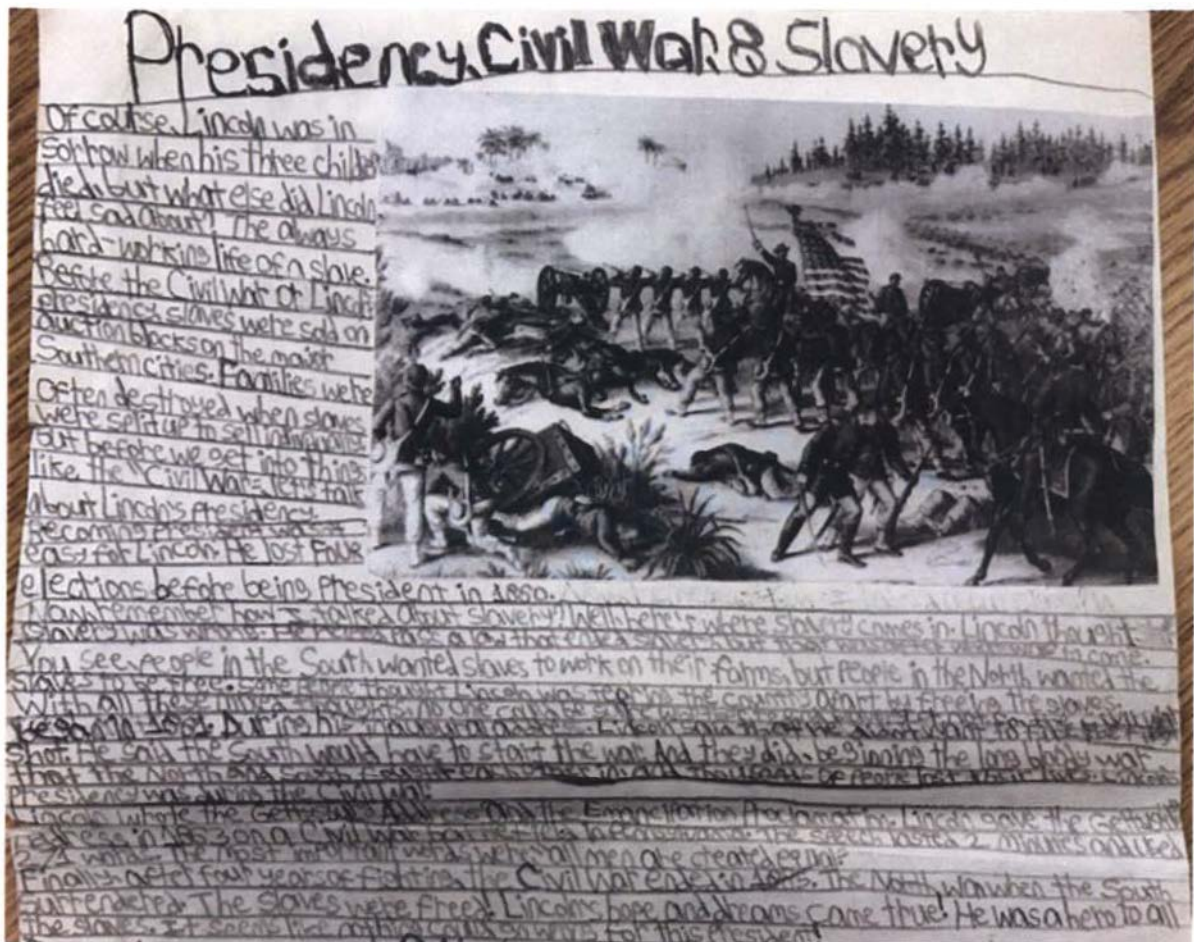 Presidency, Civil War, & Slavery
Of course, Lincoln was in
sorrow when his three children
died, but what else did Lincoln
feel sad about? The always
hard-working life of a slave.
Before the Civil War or Lincoln's
presidency, slaves were sold on
auction blocks on the major
Southern cities. Families were
often destroyed when slaves
were split up to sell individually
but before we get into things
like the Civil War- let's talk
about Lincoln's presidency
Becoming President wasn't
easy for Lincoln. He lost four
elections before being President in 1860.
Now, remember how I talked about slavery? Well, here's where slavery comes in. Lincoln thought
slavery was wrong. He a law that ended slavery but that was to come.
You see, people in the South wanted slaves to work on their farms, but people in the North wanted the
slaves to be free. Some people thought Lincoln was tearing the country apart by freeing the slaves.
With all these mixed thoughts, no one could be
began in 1861. During his Lincoln said that he didn't want to
shot. He said the South would have to start the war. And they did, beginning the long bloody war
that the North and South fought people lost their lives. Lincoln's
presidency was during the Civil War.
Lincoln wrote the Gettysburg Address and the Emancipation Proclamation. Lincoln gave the Gettysburg
Address in 1863 on a Civil War battlefield in The speech lasted 2 minutes and used
words- the most important words were "all men are created equal."
Finally, after four years of fighting, the Civil War ended in 1865. The North won when the South
surrendered. The slaves were freed. Lincoln's hope and dreams came true! He was a hero to all
the slaves. It seems like nothing could go wrong for this President